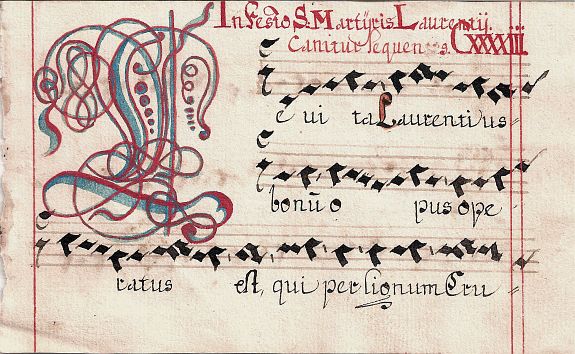 In Festo S. Martÿris Laurentij.
Canitur sequens. CXXXXIII.
L e ui ta Laurentius
bonū o pus ope
ratus est, qui per signum Cru